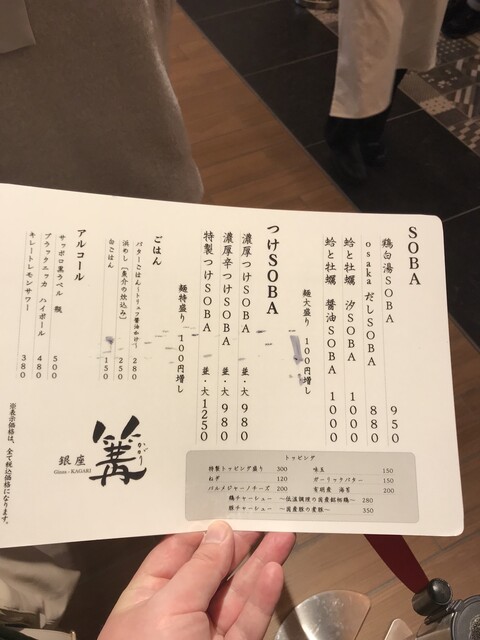 SOBA
鶏白湯SOBA 950
osakaだしSOBA 880
蛤と牡蠣 汐SOBA 1000
蛤と牡蠣 醤油SOBA 1000
麺大盛り 100円増し
つけSOBA
濃厚つけSOBA 並・大 980
濃厚辛つけSOBA 並・大 980
特製つけSOBA 並・大 1250
麺特盛り 100円増し
ごはん
バターごはん〜トリュフ醤油かけ〜 280
浜めし〔魚介の炊込み〕 250
白ごはん 150
アルコール
サッポロ黒ラベル 瓶 500
ブラックニッカ ハイボール 480
キレートレモンサワー 380
トッピング
特製トッピング盛り 300
ねぎ 120
パルメジャーノチーズ 200
味玉 150
ガーリックバター 150
有明産 海苔 200
鶏チャーシュー 〜低温調理の国産銘柄鶏〜 280
豚チャーシュー 〜国産豚の煮豚〜 350
銀座
Ginza - KAGARI
篝
かがり
※表示価格は、全て税込価格になります。